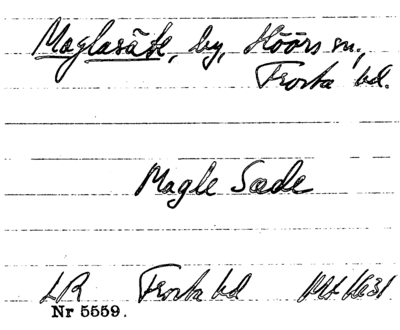 Maglasäte, by, Höörs sn,
Frosta hd.
Magle Sæde
LR Frosta hd 1631
Nr 5559.